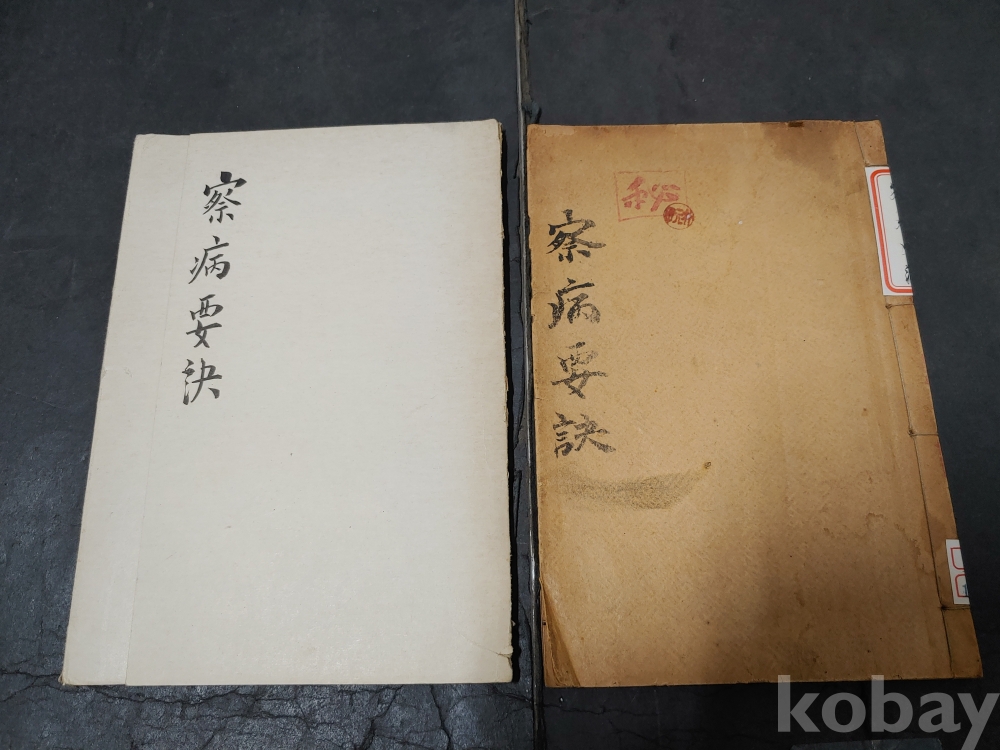 察病要訣
秘
察病要訣
kobay